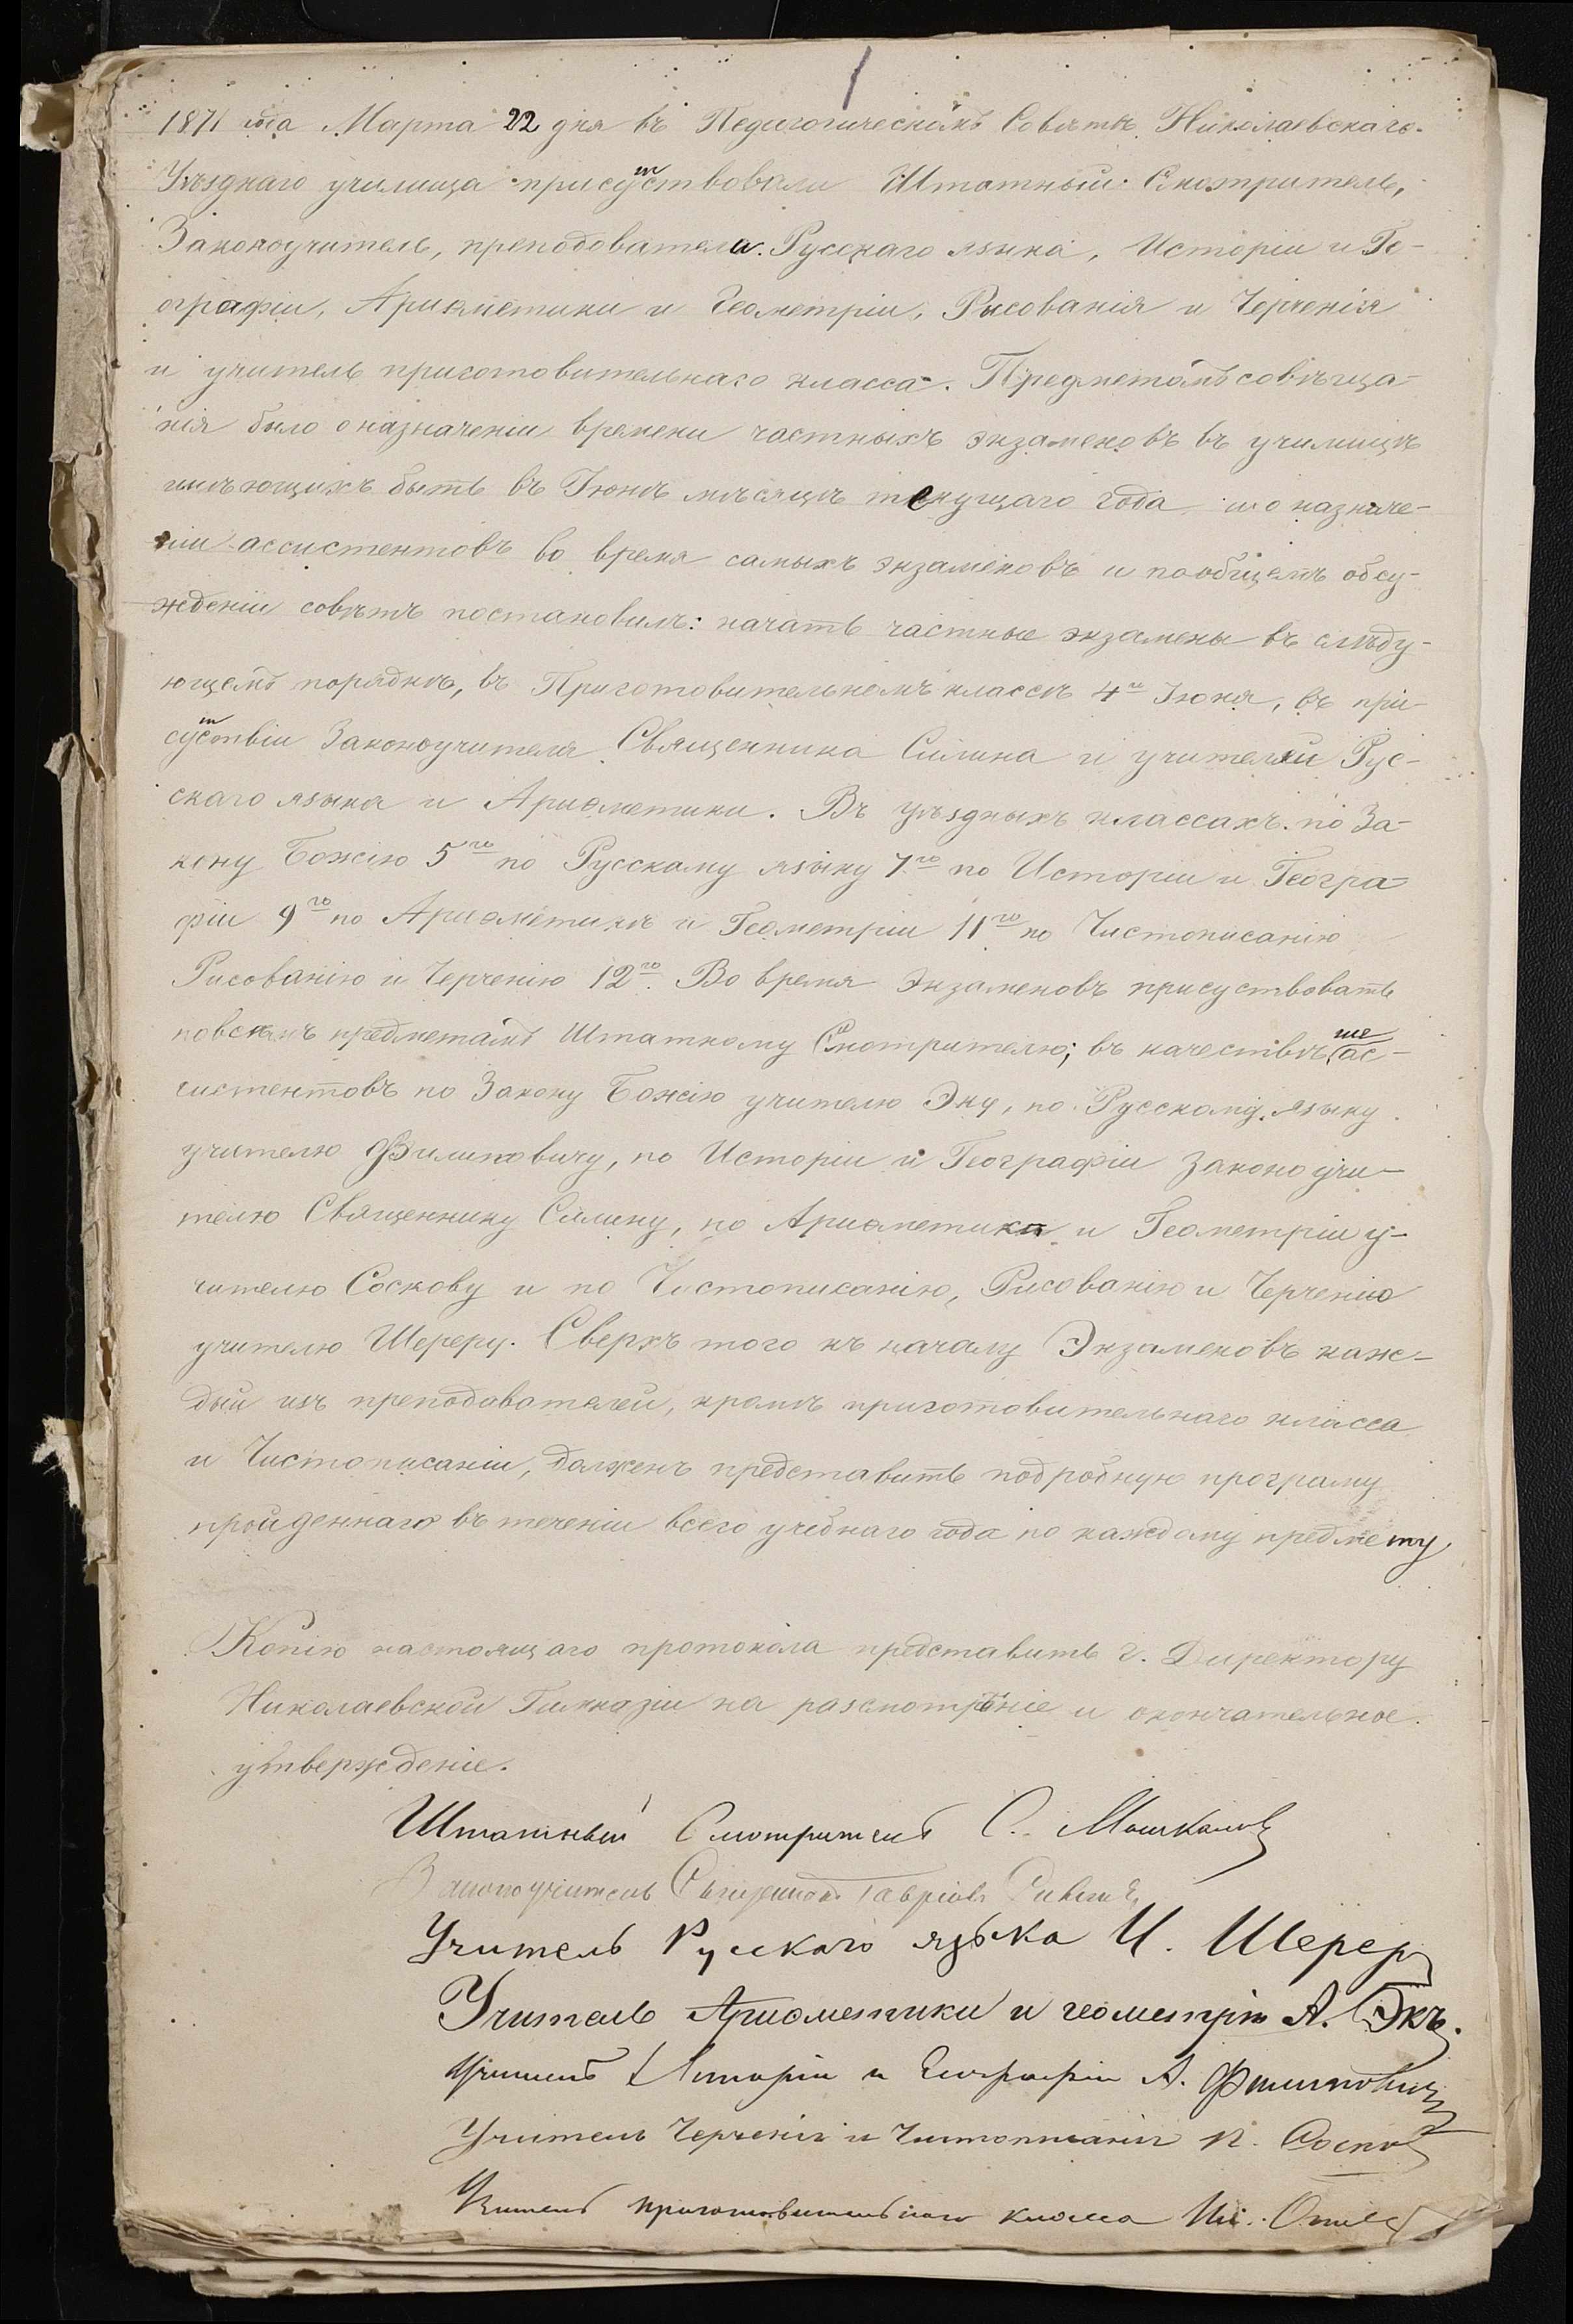 1
1871 года Марта 22 дня въ Педагогическомъ Совѣтѣ Николаевскаго
Уѣзднаго училища присутствовали Штатный Смотритель,
Законоучитель, преподователи Русскаго языка, Исторіи и Ге-
ографіи, Ариѳметики и Геометріи, Рисованія и Черченія
и учитель приготовительнаго класса. Предметомъ совѣща-
нія было о назначеніи времени частныхъ экзаменовъ въ училищѣ
имѣющихъ быть въ Іюнѣ мѣсяцѣ текущаго года и о назначе-
ніи ассистентовъ во время самыхъ экзаменовъ и по общемъ обсу-
жденіи совѣтъ постановилъ: начать частные экзамены въ слѣду-
ющемъ порядкѣ, въ Приготовительномъ классѣ 4го Іюня, въ при-
сутствіи Законоучителя Священника Силина и учителей Рус-
скаго языка и Ариѳметики. Въ уѣздныхъ классахъ по За-
кону Божію 5го по Русскому языку 7го по Исторіи и Геогра-
фіи 9го по Ариѳметикѣ и Геометріи 11го по Чистописанію
Рисованію и Черченію 12го. Во время Экзаменовъ присуствовать
по всѣмъ предметамъ Штатному Смотрителю; въ качествѣ же ас-
систентовъ по Закону Божію учителю Эку, по Русскому языку
учителю Филиповичу, по Исторіи и Географіи Законоучи-
телю Священнику Силину, по Ариѳметикѣ и Геометріи у-
чителю Соскову и по Чистописанію, Рисованію и Черченію
учителю Шереру. Сверхъ того къ началу Экзаменовъ каж-
дый изъ преподавателей, кромѣ приготовительнаго класса
и Чистописанія, долженъ представить подробную програму
пройденнаго въ теченіи всего учебнаго года по каждому предмету
Копію настоящаго протокола представить г. Директору
Николаевской Гимназіи на разсмотрѣніе и окончательное
утвержденіе.
Штатный Смотритель С.
Законоучитель Священникъ Гавріилъ Силинъ
Учитель Русскаго языка И. Шерер
Учитель Ариѳметики и геометріи А. Экъ.
Учитель Исторіи и Географіи А. Филиповичъ
Учитель Черченія и Чистописанія П. Сосковъ
Учитель приготовительнаго класса